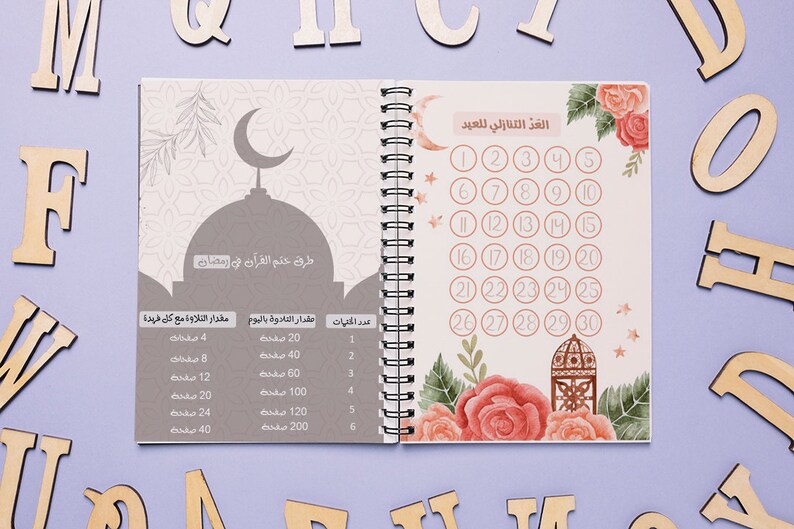 العَدّ التنازلي للعيد
1 2 3 4 5
6 7 8 9 10
11 12 13 14 15
16 17 18 19 20
21 22 23 24 25
26 27 28 29 30
طرق ختم القرآن في رمضان
عدد الختمات مقدار التلاوة باليوم مقدار التلاوة مع كل فريضة
1 20 صفحة 4 صفحات
2 40 صفحة 8 صفحة
3 60 صفحة 12 صفحة
4 100 صفحة 20 صفحة
5 120 صفحة 24 صفحة
6 200 صفحة 40 صفحة